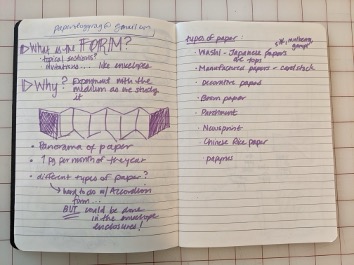 What is the FORM?
typical sections?
mutations.... like envelopes
Why? Experiment with the
medium as we study
it
• Panorama of paper
• 1 pg per month of the year
• different types of paper?
hard to do w/ Accordion
form...
BUT could be done
in the envelope
enclosures!
types of paper:
• Washi - Japanese papers
• Manufactured papers - cardstock
• Decorative papers
paper
• Parchment
• Newsprint
• Chinese Rice paper
papyrus